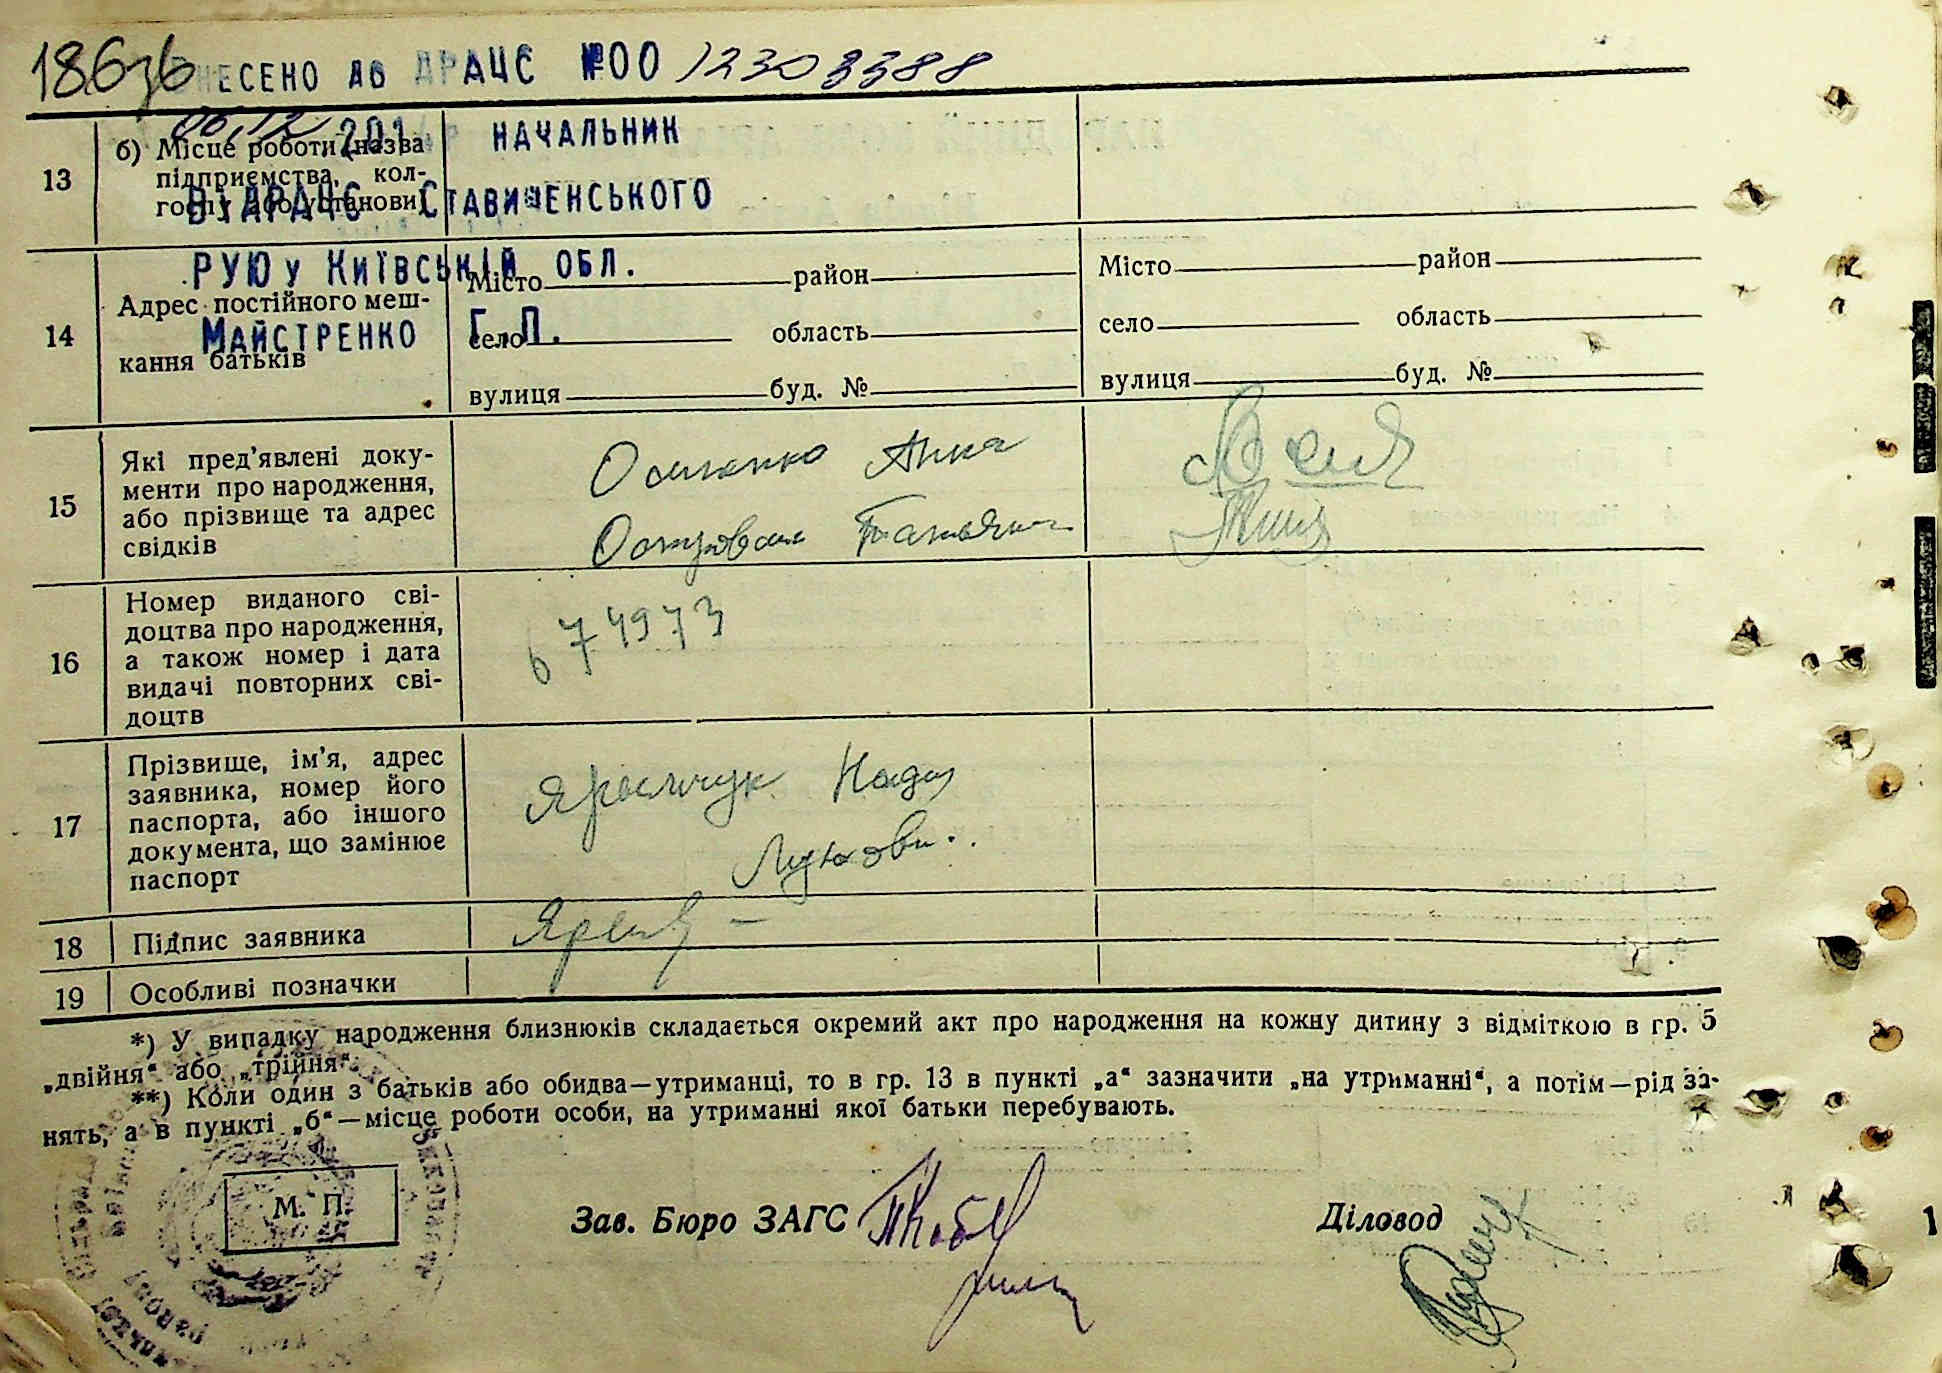 186зв
ВНЕСЕНО до ДРАЦС №00 12303388
06.12.201 НАЧАЛЬНИК
13 б) Місце роботи (назва
підприємства, кол-
госпу або установи)
ВДРАЦС Ставищенського
РУЮ у Київській обл.
Майстренко Г.П.
14 Адрес постійного меш-
кання батьків
Місто район
село область
вулиця буд. №
Місто район
село область
вулиця буд. №
15 Які пред'явлені доку-
менти про народження,
або прізвище та адрес
свідків
Анна
Татьяна
16 Номер виданого сві-
доцтва про народження,
а також номер і дата
видачі повторних сві-
доцтв
674973
17 Прізвище, ім'я, адрес
заявника, номер його
паспорта, або іншого
документа, що замінює
паспорт
Яремчук Надія
18 Підпис заявника
19 Особливі позначки
*) У випадку народження близнюків складається окремий акт про народження на кожну дитину з відміткою в гр. 5
„двійня“ або „трійня“.
**) Коли один з батьків або обидва—утриманці, то в гр. 13 в пункті „а“ зазначити „на утриманні“, а потім—рід за-
нять, а в пункті „б“—місце роботи особи, на утриманні якої батьки перебувають.
М. П.
Зав. Бюро ЗАГС
Діловод
1